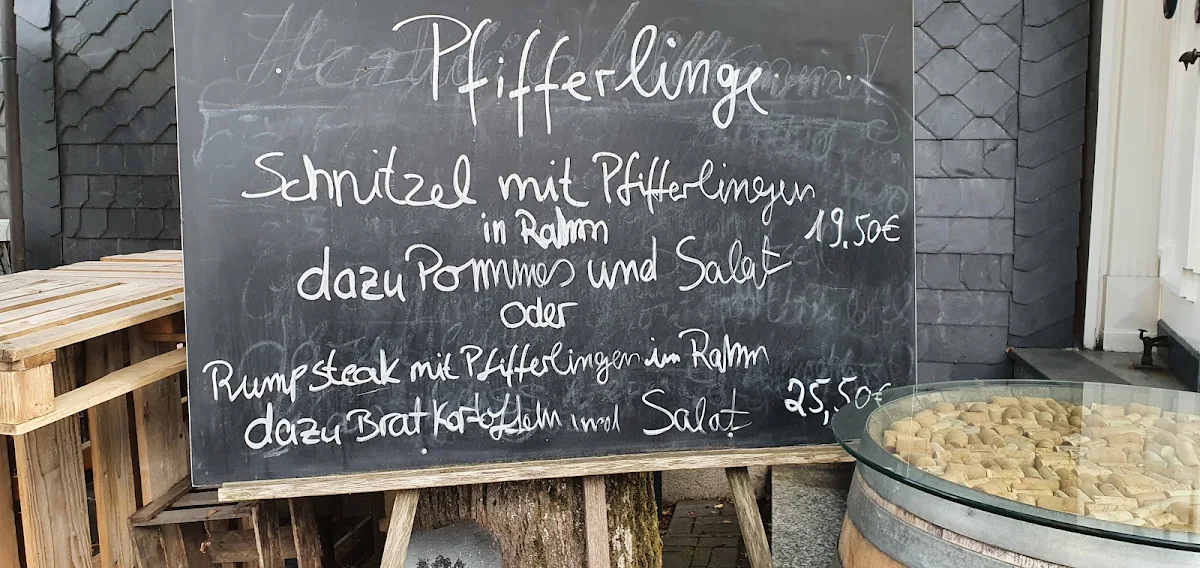 Pfifferlinge
Schnitzel mit Pfifferlingen
in Rahm 19,50€
dazu Pommes und Salat
oder
Rumpsteak mit Pfifferlingen in Rahm
dazu Bratkartoffeln und Salat 25,50€